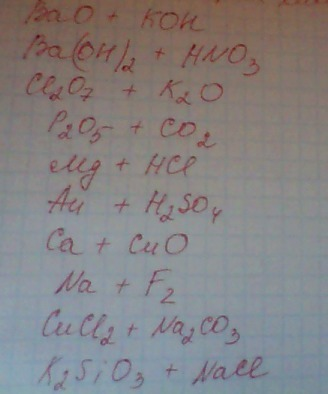 BaO + KOH
Ba(OH)₂ + HNO₃
Cl₂O₇ + K₂O
P₂O₅ + CO₂
Mg + HCl
Au + H₂SO₄
Ca + CuO
Na + F₂
CuCl₂ + Na₂CO₃
K₂SiO₃ + NaCl